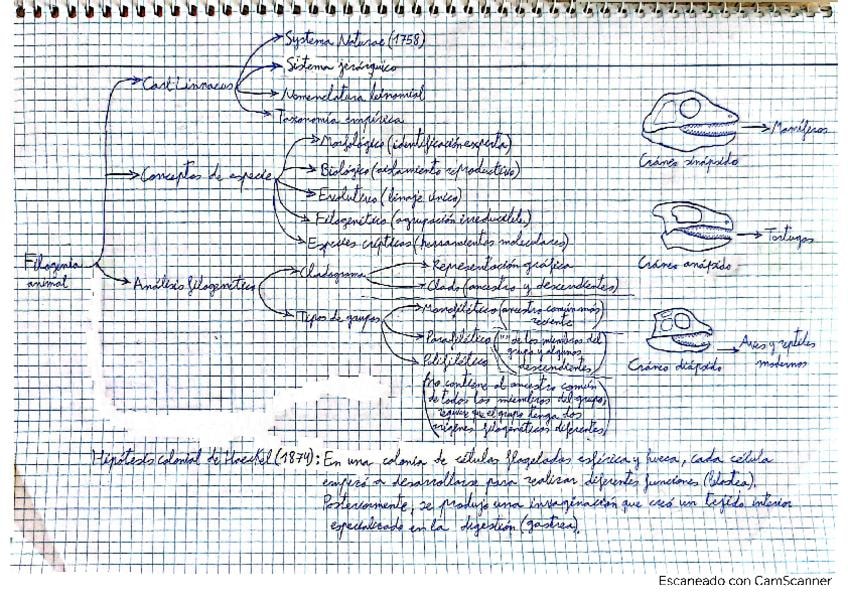 Systema Naturae (1758)
Sistema jerárquico
Carl Linnaeus
Nomenclatura binomial
Taxonomía empírica
Morfológico (identificación experta)
Biológico (aislamiento reproductivo)
Conceptos de especie
Evolutivo (linaje único)
Filogenético (agrupación irreducible)
Especies crípticas (herramientas moleculares)
Filogenia
animal
Análisis filogenético
Cladograma
Representación gráfica
Clado (ancestro y descendientes)
Tipos de grupos
Monofilético (ancestro común más
reciente)
Parafilético ("" de los miembros del
grupo y algunos
descendientes)
Polifilético
(No contiene al ancestro común
de todos los miembros del grupo,
requiere que el grupo tenga dos
orígenes filogenéticos diferentes)
Mamíferos
Cráneo sinápsido
Tortugas
Cráneo anápsido
Aves y reptiles
modernos
Cráneo diápsido
Hipótesis colonial de Haeckel (1874): En una colonia de células flageladas esférica y hueca, cada célula
empezó a desarrollarse para realizar diferentes funciones (blastea).
Posteriormente, se produjo una invaginación que creó un tejido interior
especializado en la digestión (gastrea).
Escaneado con CamScanner